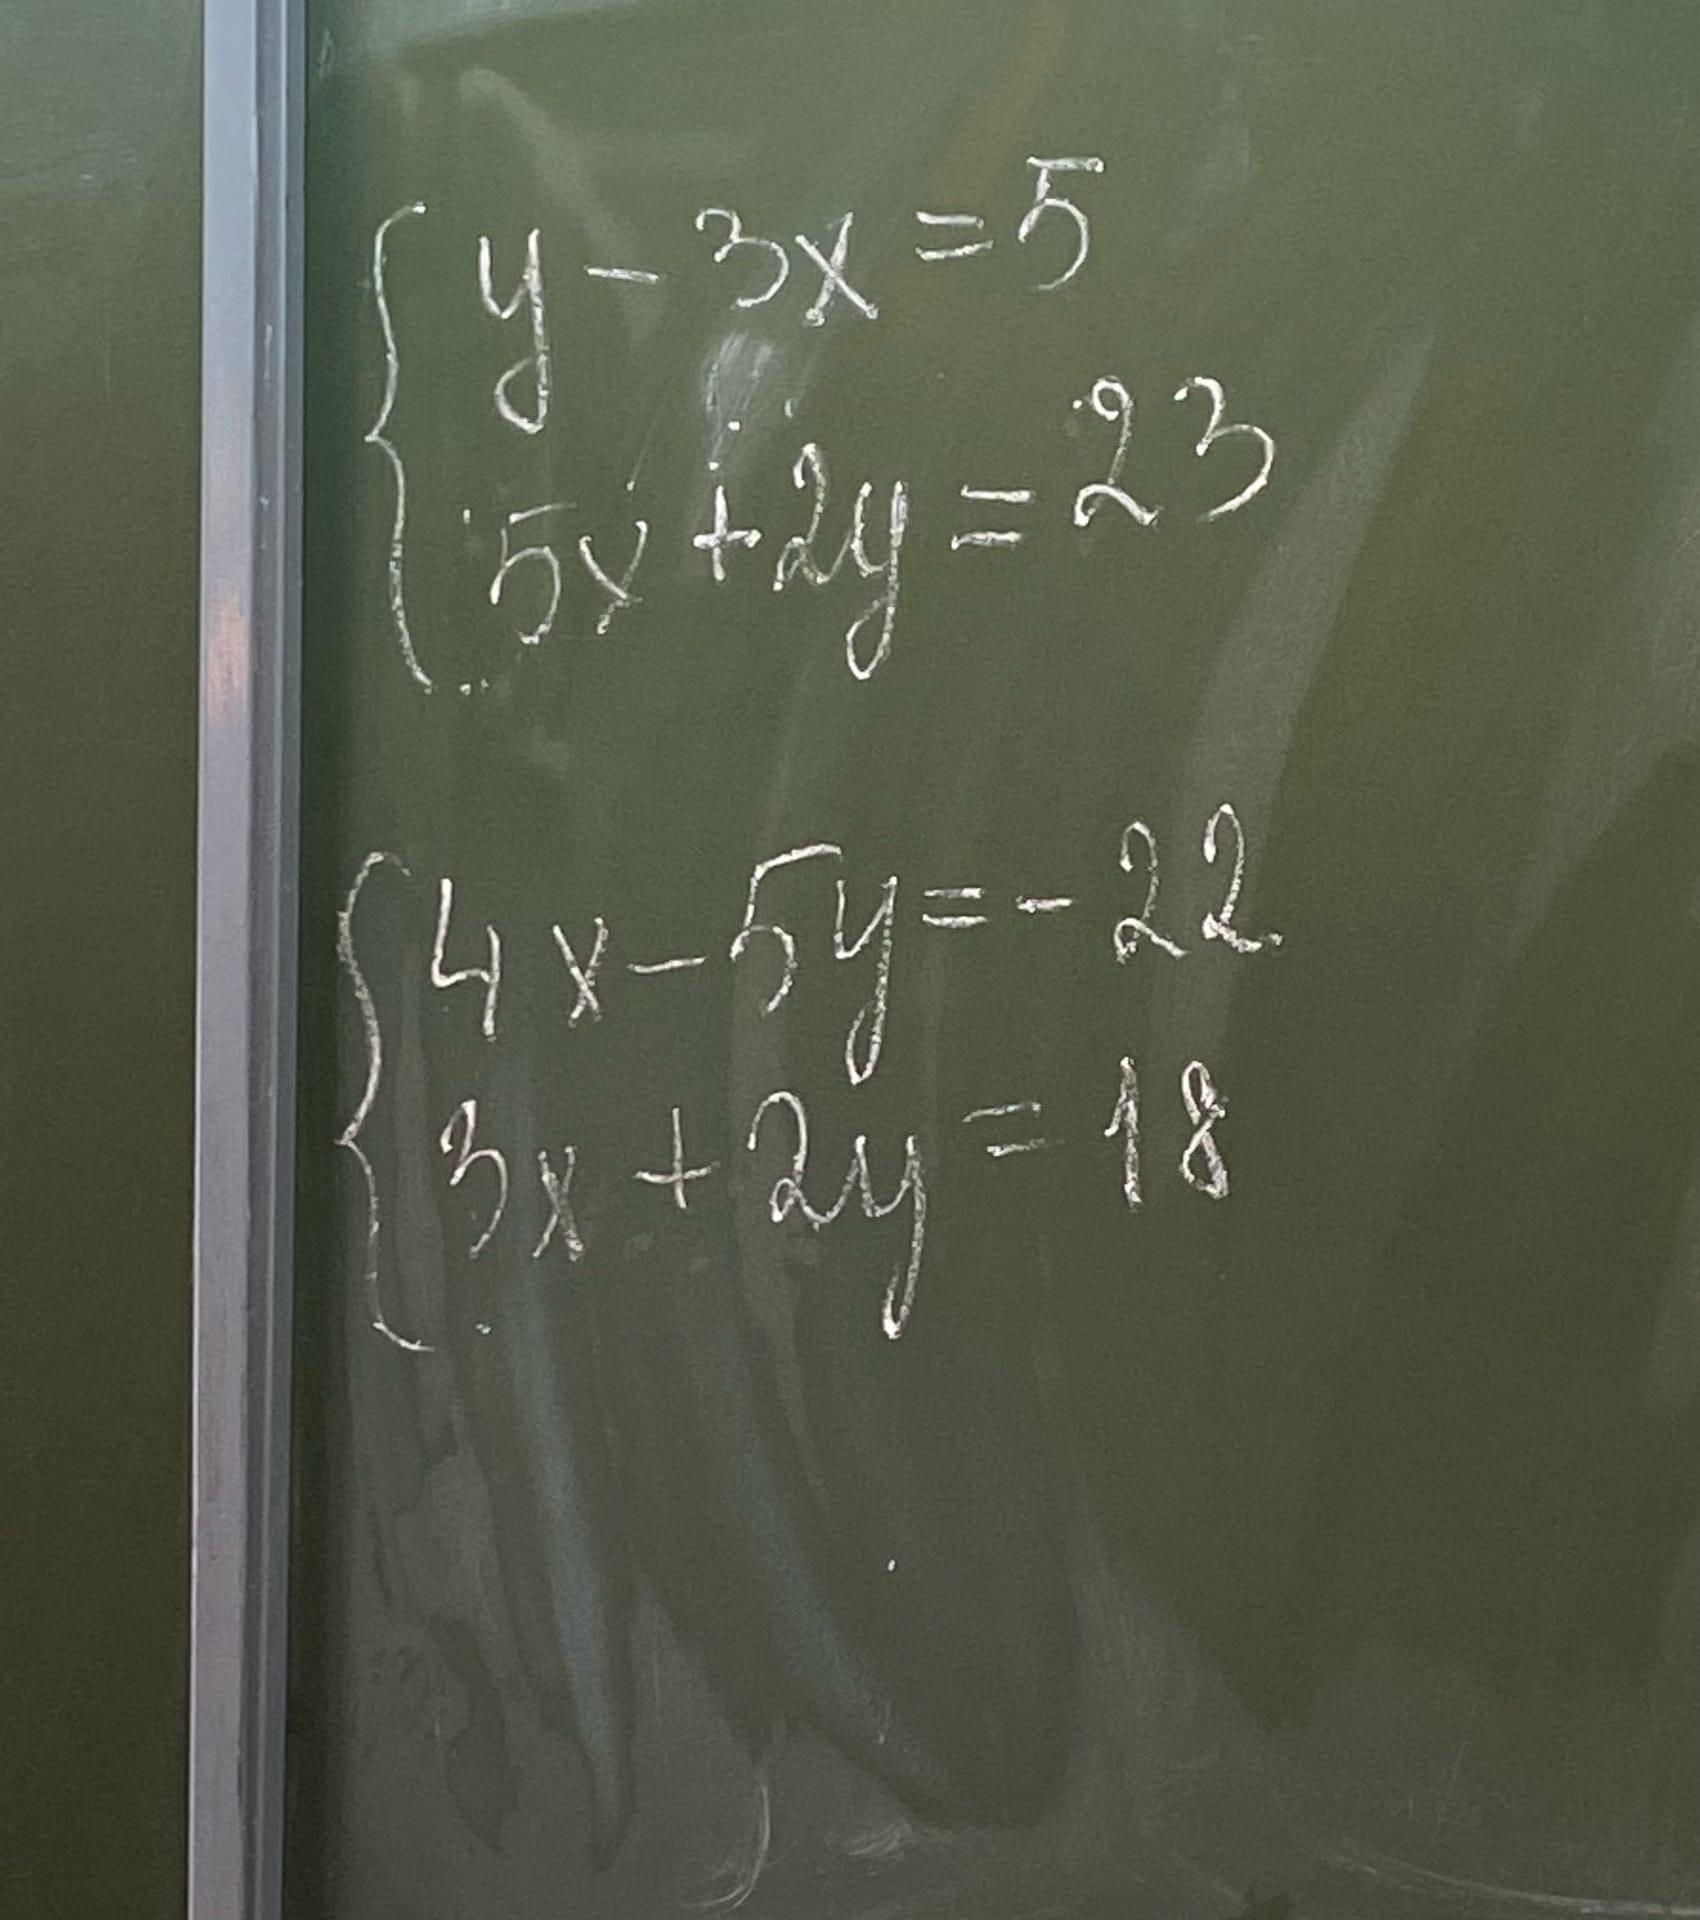 y - 3x = 5
5x + 2y = 23
4x - 5y = - 22
3x + 2y = 18